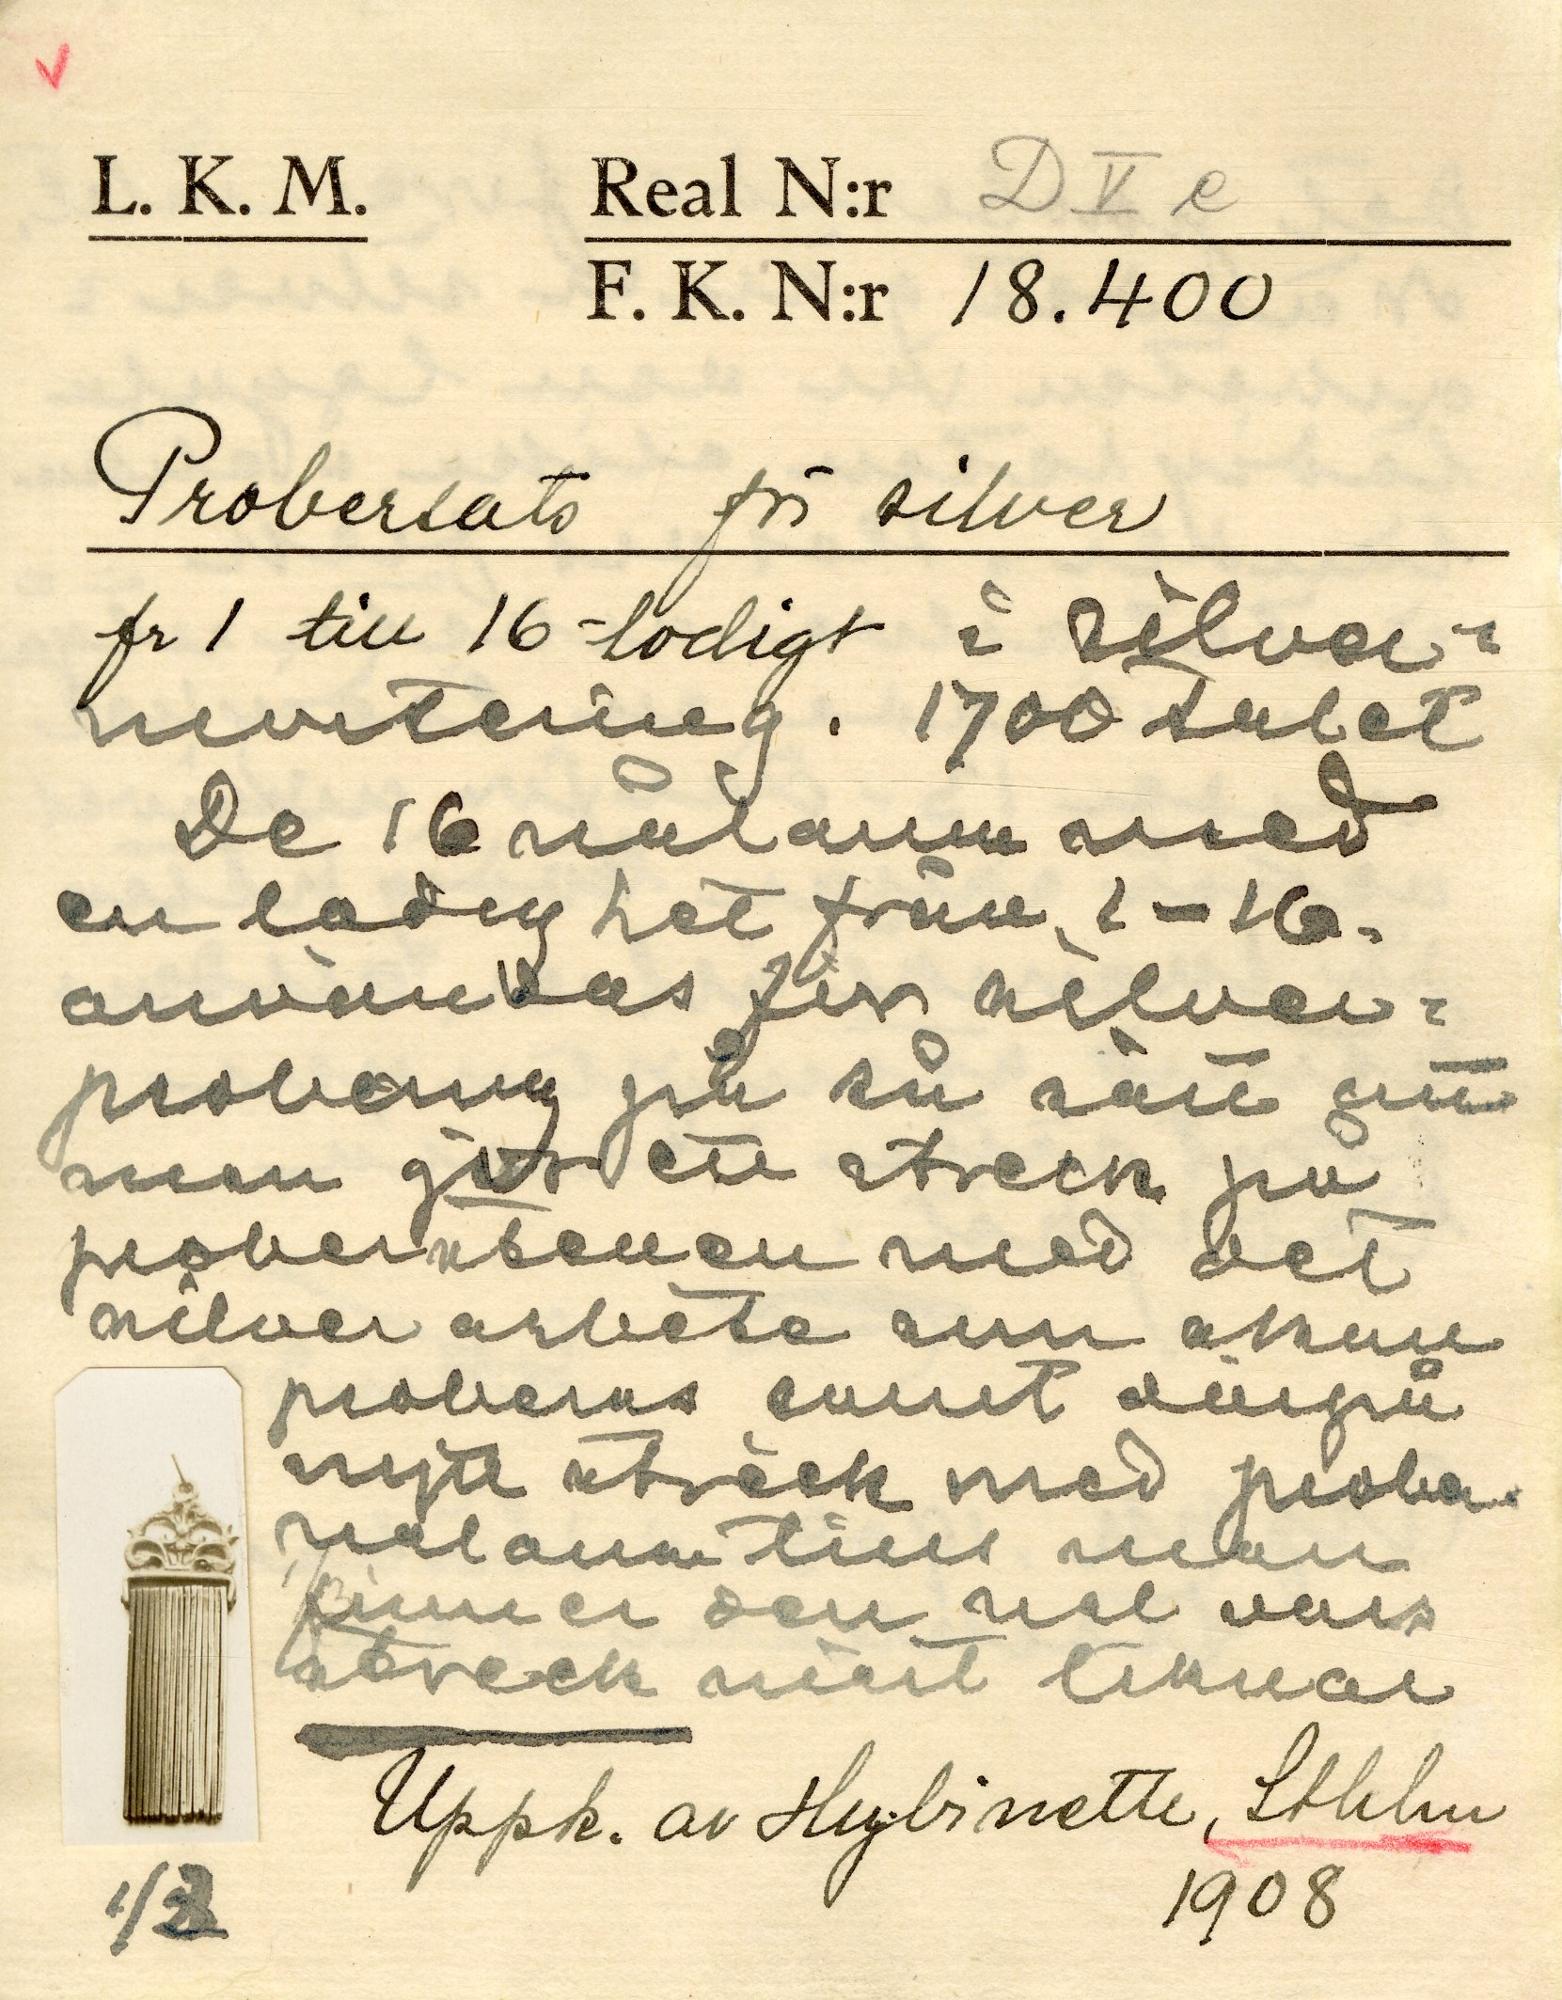 L. K. M. Real N:r D V e
F. K. N:r 18.400
Probersats för silver
fr 1 till 16-lodigt i silver-
montering. 1700 talet
De 16 nålarna med
en lödighet från 1-16.
användas för silver-
probering på så sätt att
man gör ett streck på
probersstenen med det
silver arbete som skall
proberas samt därpå
nytt streck med prober
nålarna tills man
finner den nål vars
streck mäst liknar
Uppk. av Hybinette, Sthlm
1908
1/2